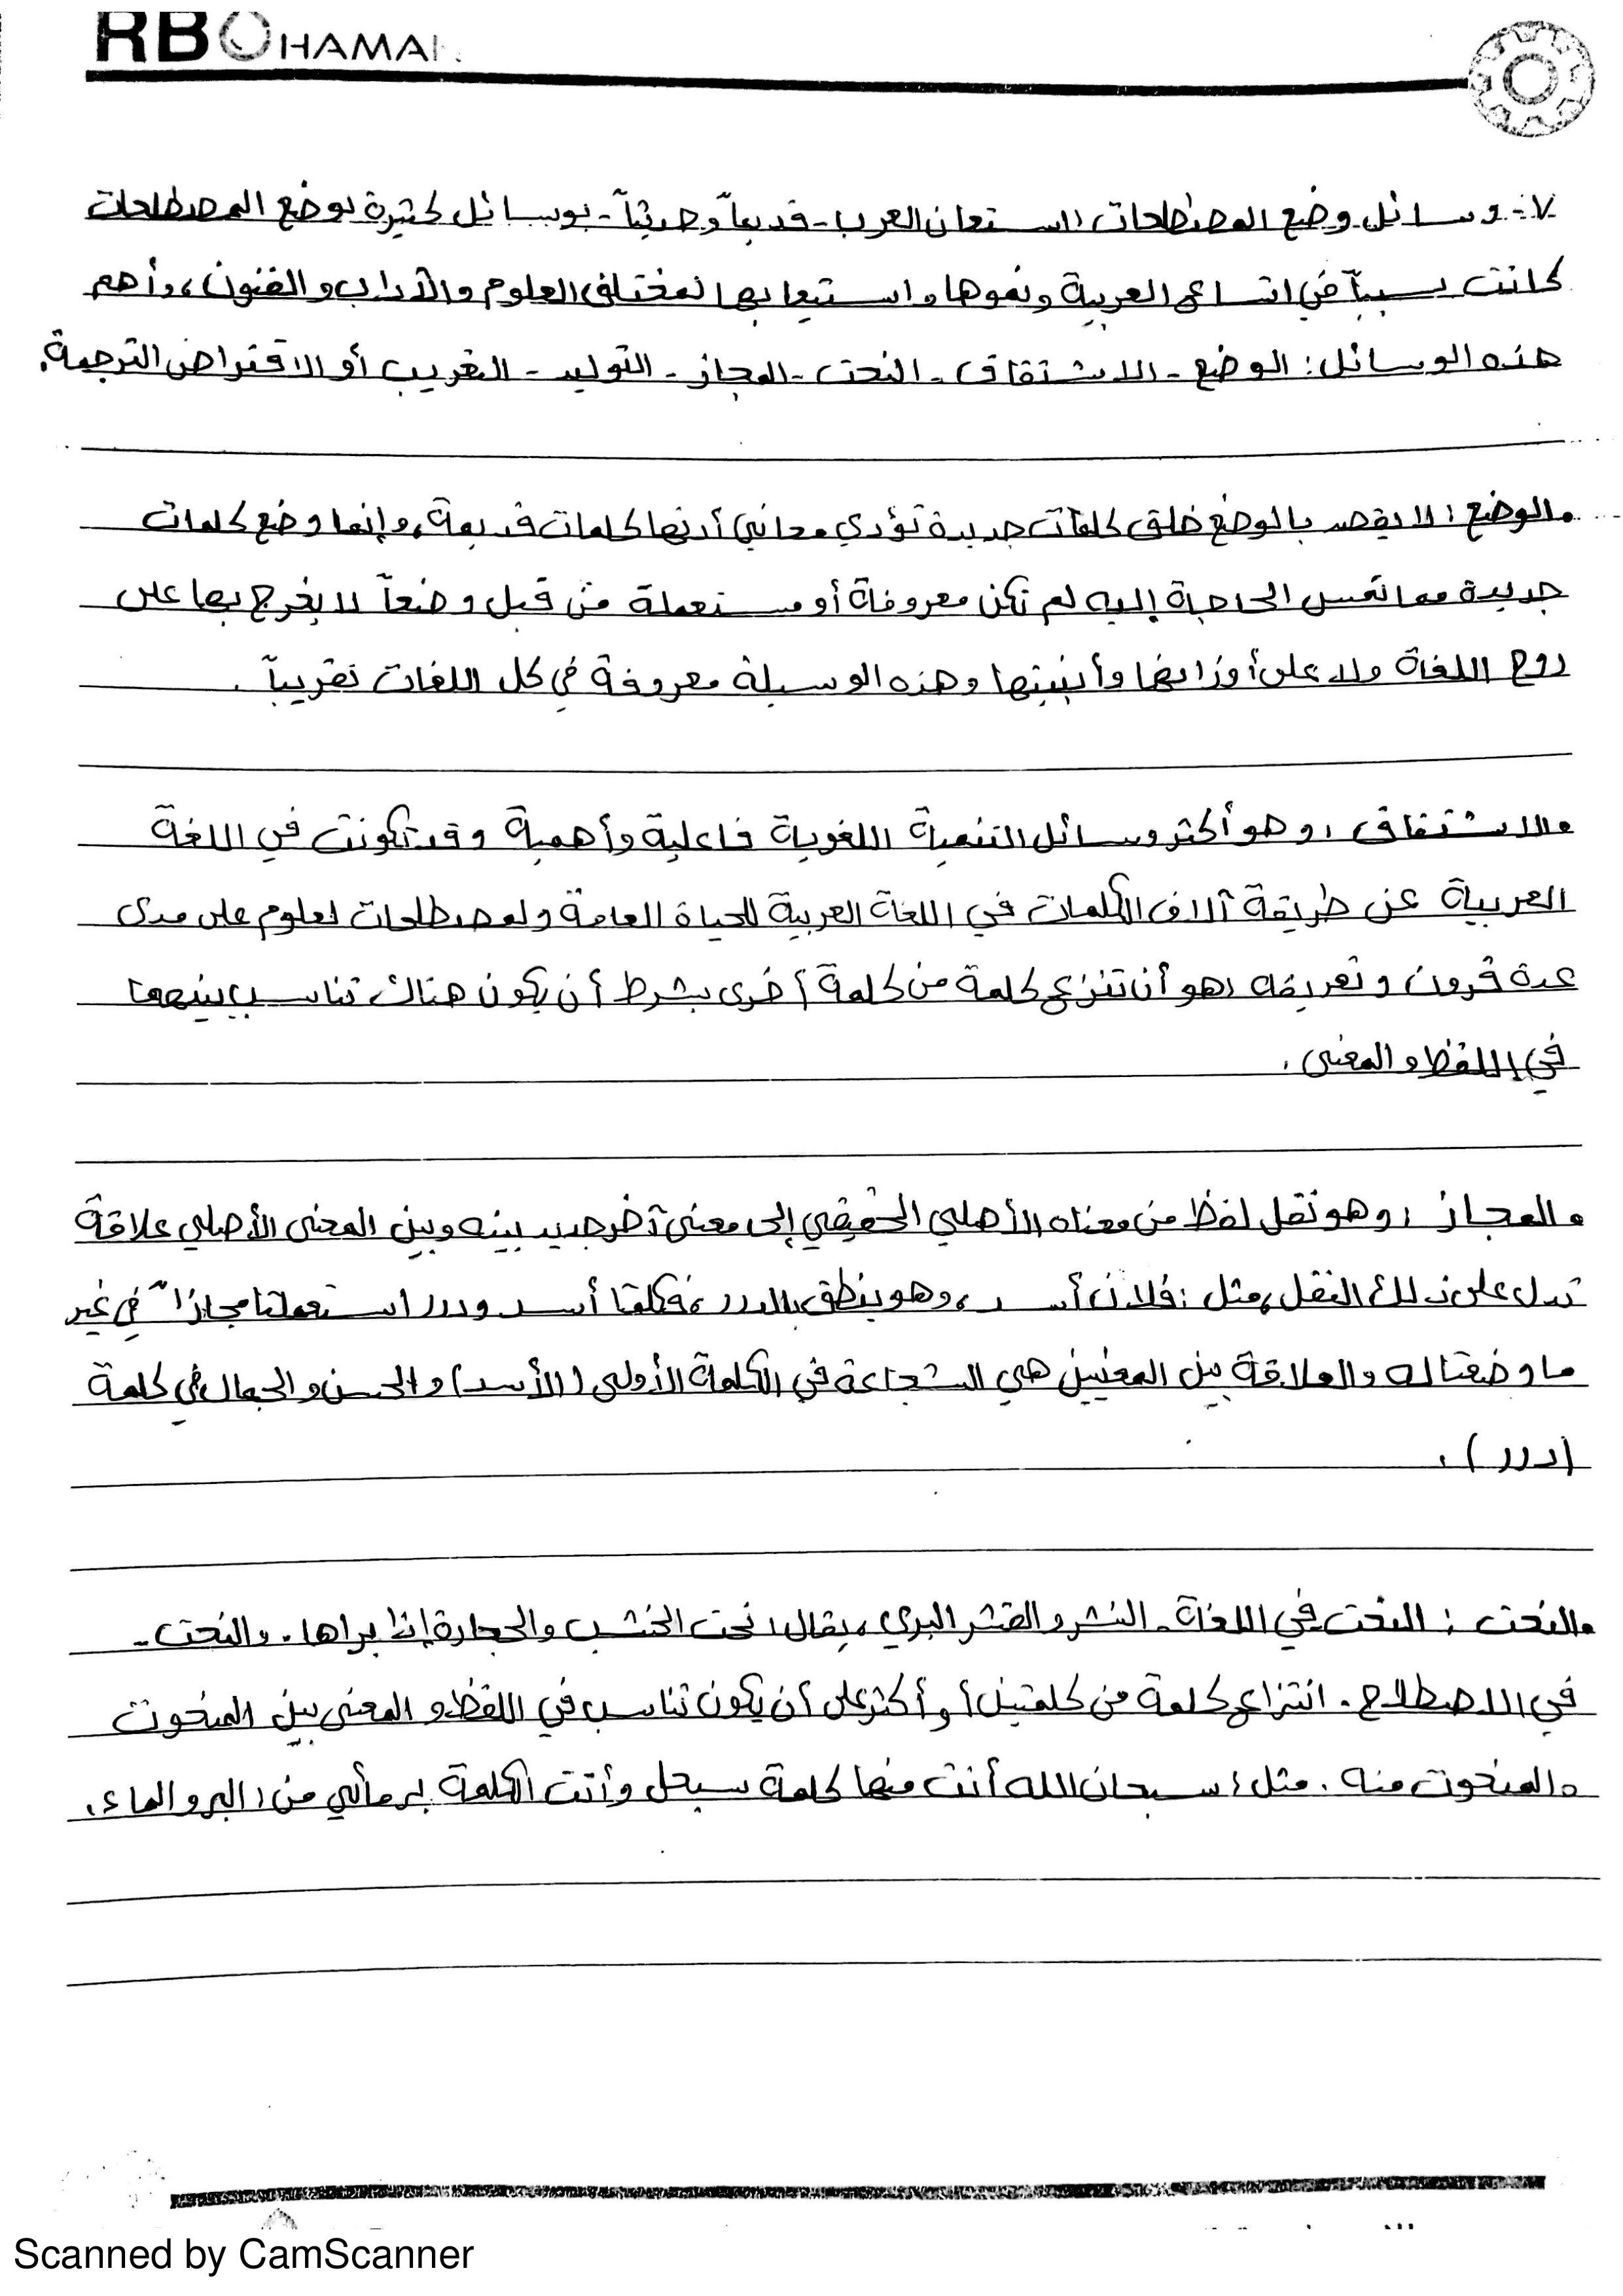 RBC HAMAI
٧- وسائل وضع المصطلحات: استعان العرب - قديماً وحديثاً - بوسائل كثيرة لوضع المصطلحات
كانت سبباً في اتساع العربية ونموها واستيعابها لمختلف العلوم والآداب والفنون، وأهم
هذه الوسائل: الوضع - الاشتقاق - النحت - المجاز - التوليد - التعريب أو الاقتراض الترجمة.
• الوضع: لا يقصد بالوضع خلق كلمات جديدة تؤدي معاني أدتها كلمات قديمة، وإنما وضع كلمات
جديدة مما تمس الحاجة إليه لم تكن معروفة أو مستعملة من قبل وضعاً لا يخرج بها على
روح اللغة ولا على أوزانها وأبنيتها وهذه الوسيلة معروفة في كل اللغات تقريباً.
• الاشتقاق: وهو أكثر وسائل التنمية اللغوية فاعلية وأهمية وقد تكونت في اللغة
العربية عن طريقة آلاف الكلمات في اللغة العربية للحياة العامة ولمصطلحات لعلوم على مدى
عدة قرون وتعريفه: هو أن تنزع كلمة من كلمة أخرى بشرط أن يكون هناك تناسب بينهما
في اللفظ والمعنى.
• المجاز: وهو نقل لفظ من معناه الأصلي الحقيقي إلى معنى آخر جديد بينه وبين المعنى الأصلي علاقة
تدل على ذلك النقل، مثل: فلان أسد، وهو ينطق بالدرر، فكلمتا أسد ودرر استعملتا مجازاً في غير
ما وضعتا له والعلاقة بين المعنيين هي الشجاعة في الكلمة الأولى (الأسد) والحسن والجمال في كلمة
(درر).
• النحت: النحت في اللغة - النشر والقشر البري، يقال: نحت الخشب والحجارة إذا براها. والنحت -
في الاصطلاح - انتزاع كلمة من كلمتين أو أكثر على أن يكون تناسب في اللفظ والمعنى بين المنحوت
والمنحوت منه. مثل: سبحان الله أتت منها كلمة سبحل وأتت الكلمة برمائي من: البر والماء.
Scanned by CamScanner